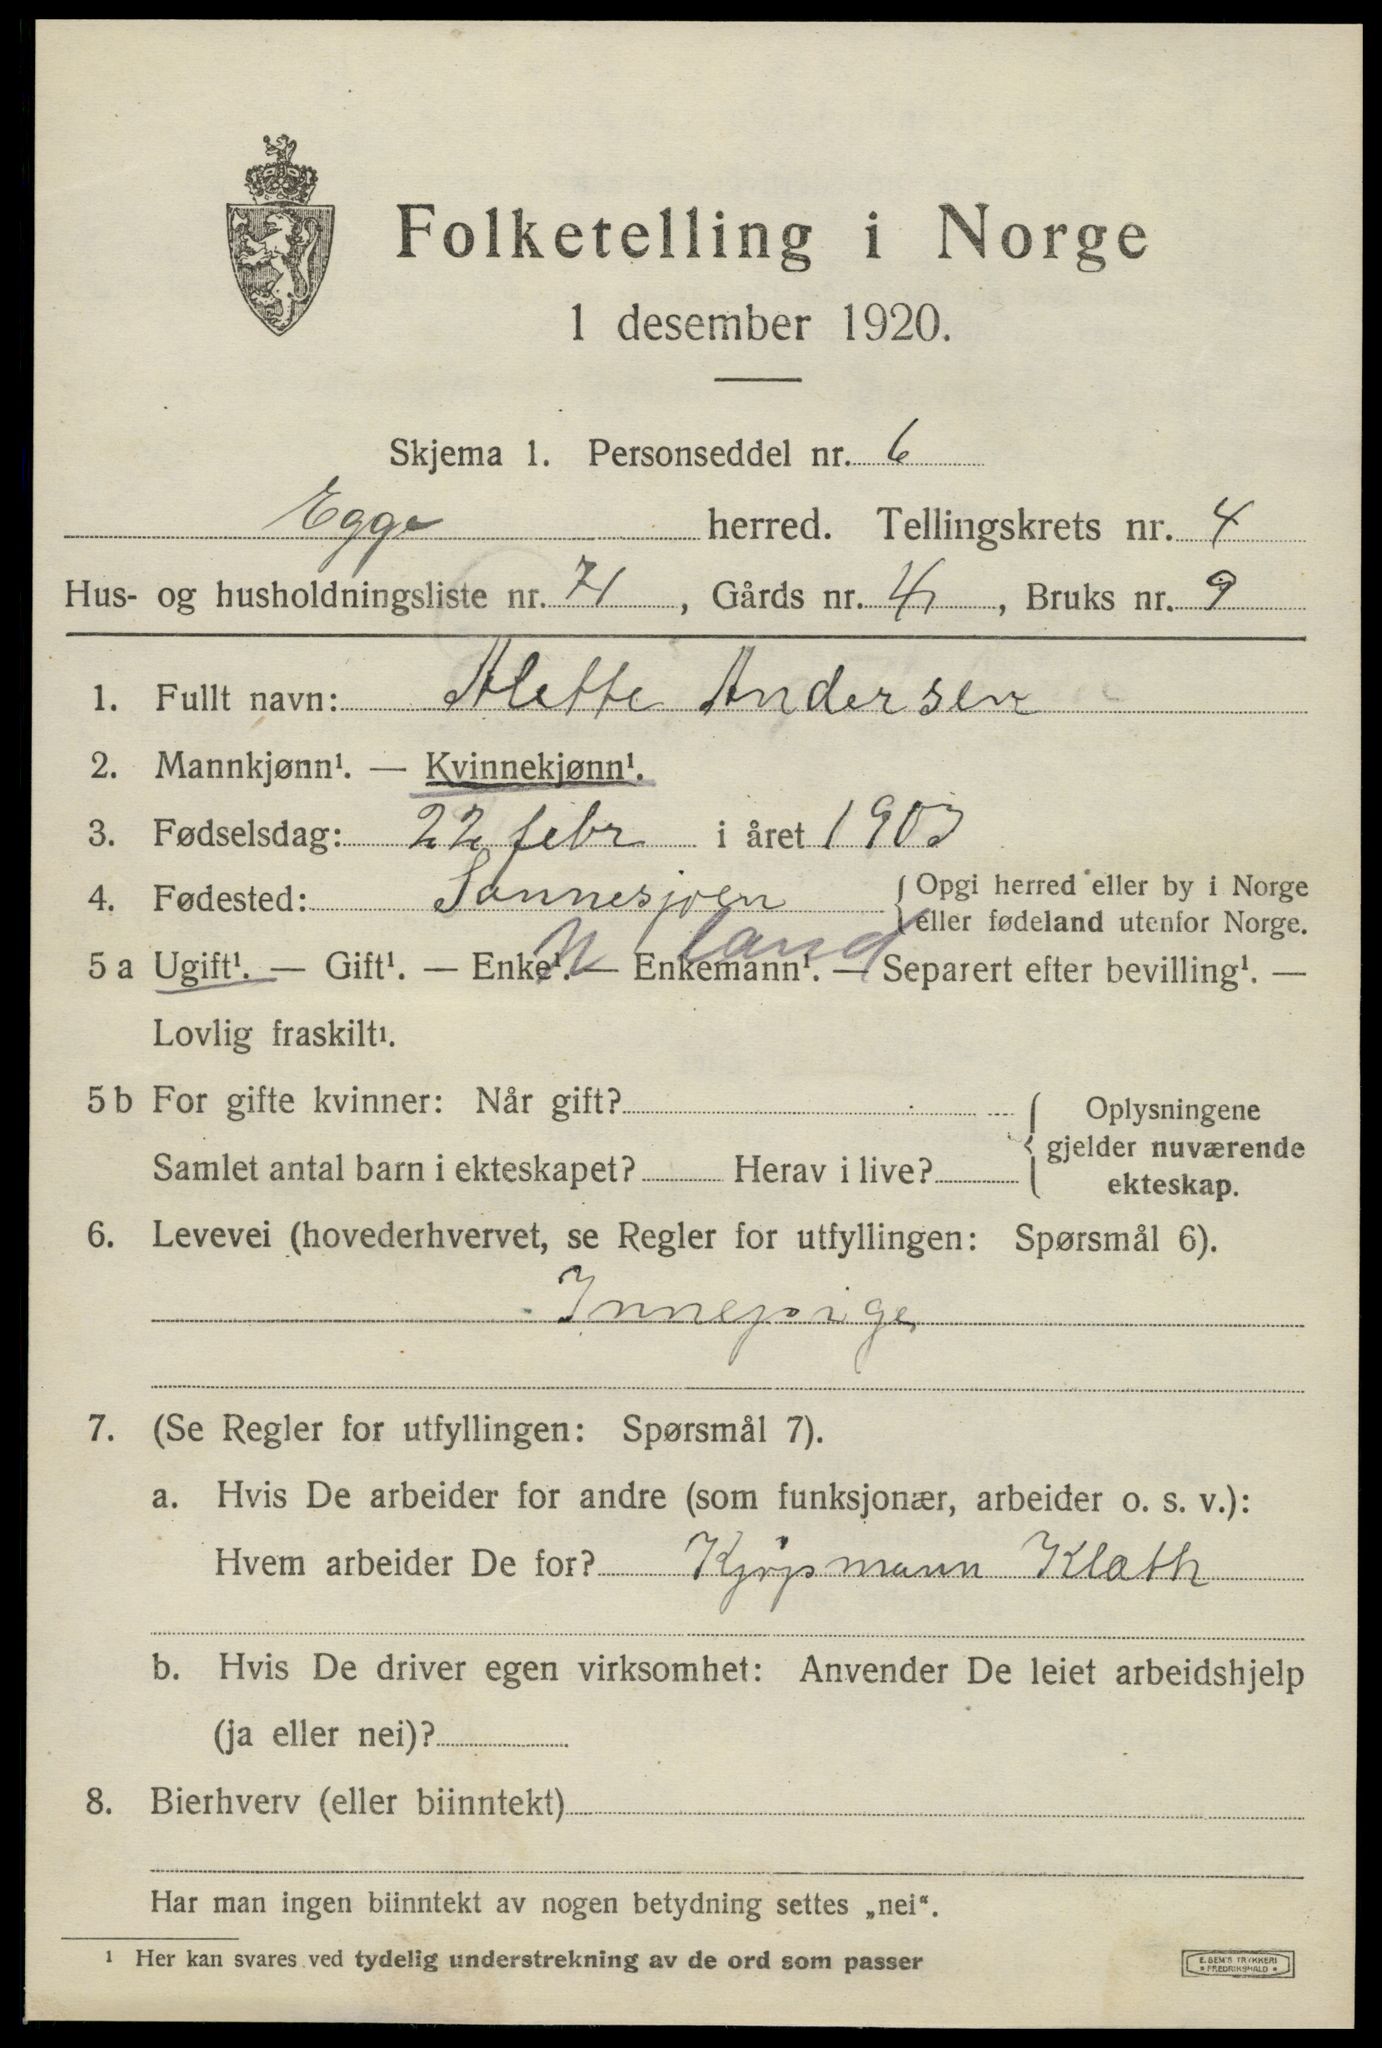 Folketelling i Norge
1 desember 1920.
Skjema 1. Personseddel nr. 6
Egge herred. Tellingskrets nr. 4
Hus- og husholdningsliste nr. 71, Gårds nr. 4, Bruks nr. 9
1. Fullt navn: Alette Andersen
2. Mannkjønn¹. — Kvinnekjønn¹.
3. Fødselsdag: 22 febr i året 1903
4. Fødested: Sannesjoen { Opgi herred eller by i Norge
eller fødeland utenfor Norge.
N land
5 a Ugift¹. — Gift¹. — Enke¹. — Enkemann¹. — Separert efter bevilling¹. —
Lovlig fraskilt¹.
5 b For gifte kvinner: Når gift? { Oplysningene
gjelder nuværende
Samlet antal barn i ekteskapet? Herav i live? ekteskap.
6. Levevei (hovederhvervet, se Regler for utfyllingen: Spørsmål 6).
Innepige
7. (Se Regler for utfyllingen: Spørsmål 7).
a. Hvis De arbeider for andre (som funksjonær, arbeider o. s. v.):
Hvem arbeider De for? Kjøpmann Klath
b. Hvis De driver egen virksomhet: Anvender De leiet arbeidshjelp
(ja eller nei)?
8. Bierhverv (eller biinntekt)
Har man ingen biinntekt av nogen betydning settes „nei“.
¹ Her kan svares ved tydelig understrekning av de ord som passer
E. SEM'S TRYKKERI
FREDRIKSHALD